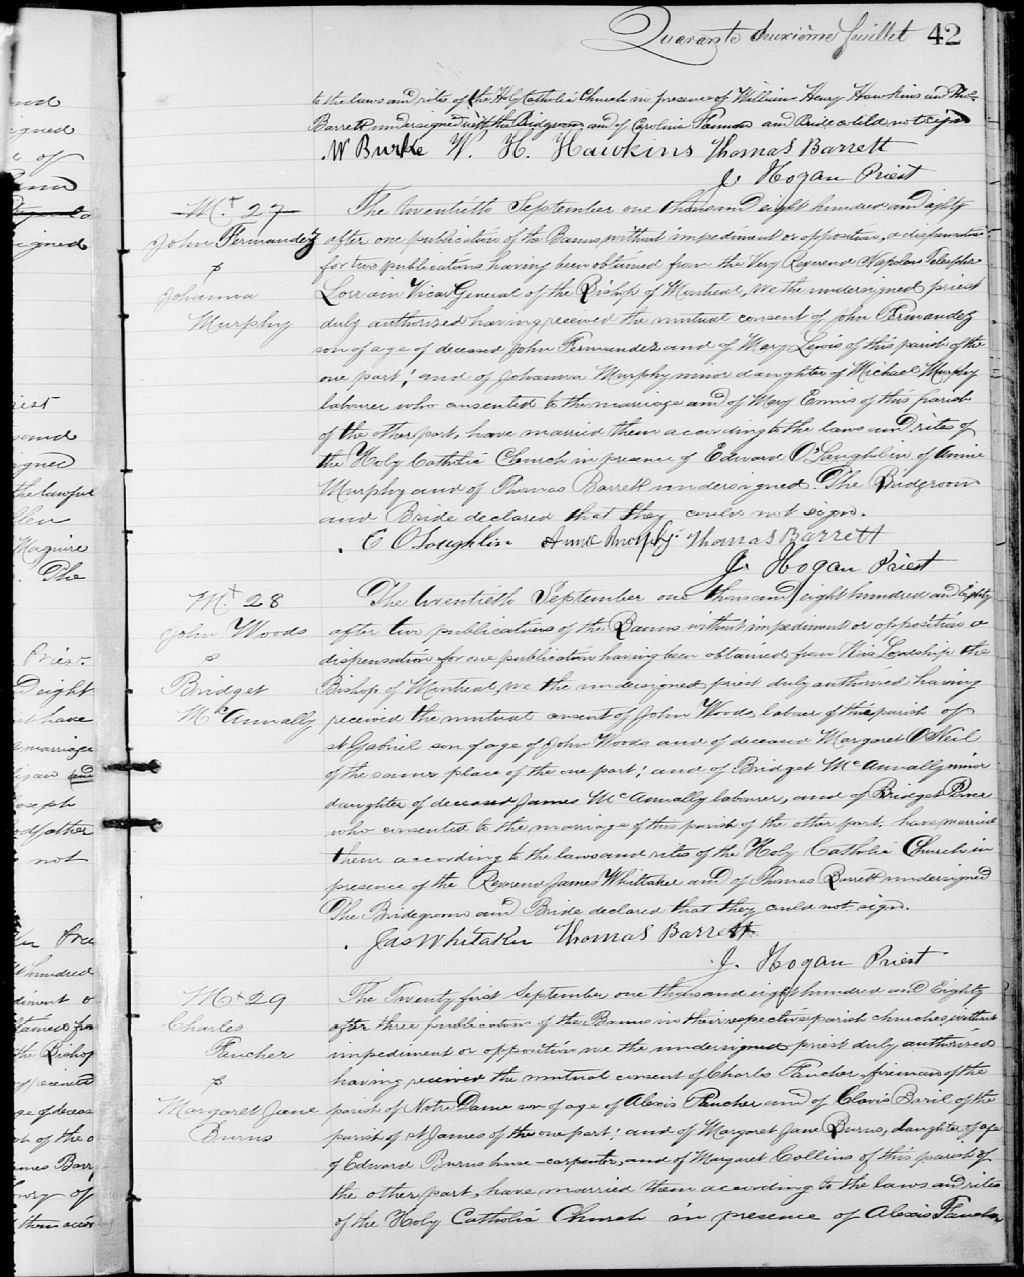 Quarante deuxième feuillet 42
to the laws and rites of the Holy Catholic Church in presence of William Henry Hawkins and Thos
Barrett undersigned with the Bridgroom and of Caroline and Bride could not sign
W Burke W. H. Hawkins Thomas Barrett
J. Hogan Priest
M.t 27
John Fernandez
&
Johanna
Murphy
The twentieth September one thousand eight hundred and eighty
after one publication of the Banns without impediment or opposition, a dispensation
for two publications having been obtained from the Very Reverend Napoleon Telesphor
Lorrain Vicar General of the Bishop of Montreal, we the undersigned priest
duly authorised having received the mutual consent of John Fernandez
son of age of deceased John Fernandez and of Mary Lewis of this parish of the
one part; and of Johanna Murphy minor daughter of Michael Murphy
labourer who consented to the marriage and of Mary Ennis of this parish
of the other part, have married them according to the laws and rites of
the Holy Catholic Church in presence of Edward O'Laughlin of Annie
Murphy and of Thomas Barrett undersigned. The Bridgroom
and Bride declared that they could not sign.
E O'Loughlin Annie Murphy Thomas Barrett
J. Hogan Priest
M.t 28
John Woods
&
Bridget
McAnnally
The twentieth September one thousand eight hundred and eighty
after two publications of the Banns without impediment or opposition a
dispensation for one publication having been obtained from His Lordship the
Bishop of Montreal, we the undersigned priest duly authorised having
received the mutual consent of John Woods, labourer of the parish of
St Gabriel son of age of John Woods and of deceased Margaret O'Neil
of the same place of the one part; and of Bridget McAnnally minor
daughter of deceased James McAnnally labourer, and of Bridget
who consented to the marriage of this parish of the other part, have married
them according to the laws and rites of the Holy Catholic Church in
presence of the Reverend James Whittaker and of Thomas Barrett undersigned
The Bridegroom and Bride declared that they could not sign.
Jas Whitaker Thomas Barrett
J. Hogan Priest
M.t 29
Charles
Faucher
&
Margaret Jane
Burns
The Twenty first September one thousand eight hundred and Eighty
after three publication of the Banns in their respective parish churches, without
impediment or opposition we the undersigned priest duly authorised
having received the mutual consent of Charles Faucher, fireman of the
parish of Notre Dame son of age of Alexis Faucher and of Clovis Baril of the
parish of St James of the one part; and of Margaret Jane Burns, daughter of age
of Edward Burns house-carpenter, and of Margaret Collins of this parish of
the other part, have married them according to the laws and rites
of the Holy Catholic Church in presence of Alexis Faucher